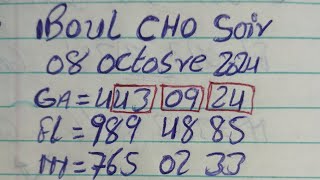 Boul CHO Soir
08 octosre 2024
GA = 443 09 24
FL = 989 48 85
NY = 765 02 33